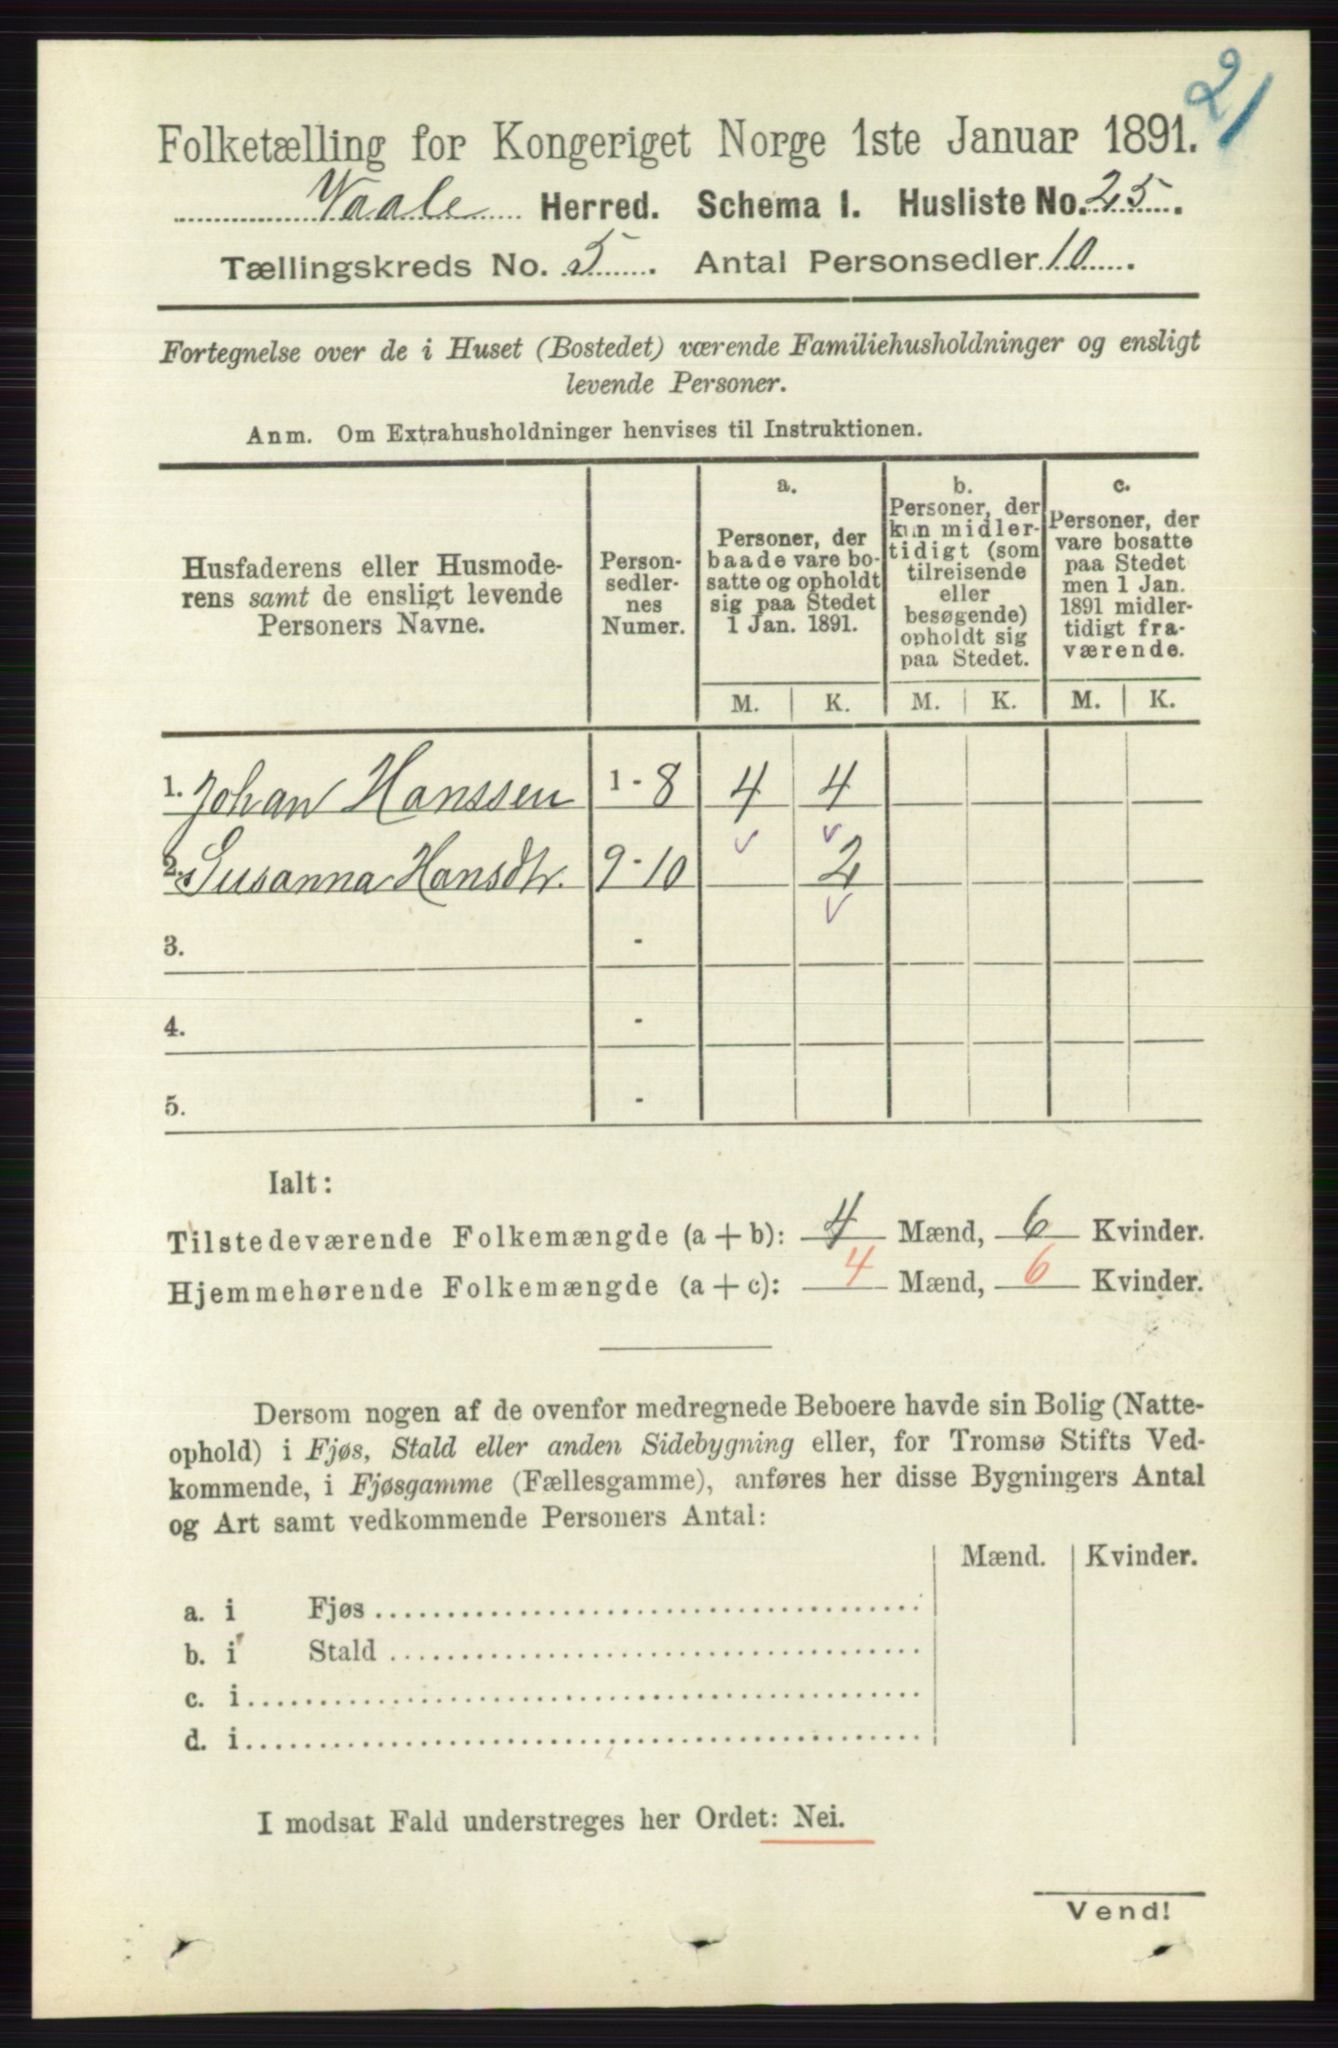 21
Folketælling for Kongeriget Norge 1ste Januar 1891.
Vaale Herred. Schema I. Husliste No. 25.
Tællingskreds No. 5. Antal Personsedler 10.
Fortegnelse over de i Huset (Bostedet) værende Familiehusholdninger og ensligt
levende Personer.
Anm. Om Extrahusholdninger henvises til Instruktionen.
Husfaderens eller Husmode-
rens samt de ensligt levende
Personers Navne.
Person-
sedler-
nes
Numer.
a.
Personer, der
baade vare bo-
satte og opholdt
sig paa Stedet
1 Jan. 1891.
b.
Personer, der
kun midler-
tidigt (som
tilreisende
eller
besøgende)
opholdt sig
paa Stedet.
c.
Personer, der
vare bosatte
paa Stedet
men 1 Jan.
1891 midler-
tidigt fra-
værende.
M. K. M. K. M. K.
1. Johan Hanssen 1 - 8 4 4
2. Susanna Hansdtr. 9 - 10 2
3. -
4. -
5. -
Ialt:
Tilstedeværende Folkemængde (a + b): 4 Mænd, 6 Kvinder.
Hjemmehørende Folkemængde (a + c): 4 Mænd, 6 Kvinder.
Dersom nogen af de ovenfor medregnede Beboere havde sin Bolig (Natte-
ophold) i Fjøs, Stald eller anden Sidebygning eller, for Tromsø Stifts Ved-
kommende, i Fjøsgamme (Fællesgamme), anføres her disse Bygningers Antal
og Art samt vedkommende Personers Antal:
Mænd. Kvinder.
a. i Fjøs
b. i Stald
c. i
d. i
I modsat Fald understreges her Ordet: Nei.
Vend!